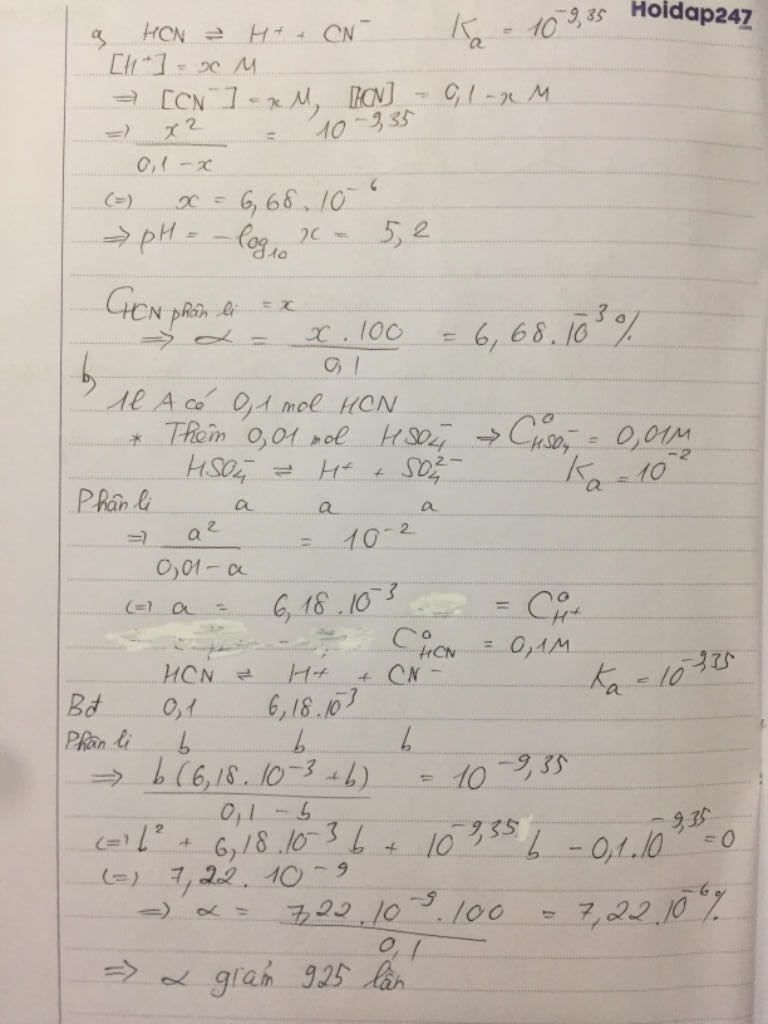 Hoidap247
a, HCN ⇌ H+ + CN⁻ Ka = 10^-9,35
[H+] = x M
=> [CN⁻] = x M, [HCN] = 0,1 - x M
=> x²/(0,1 - x) = 10^-9,35
(=) x = 6,68.10^-6
=> pH = -log₁₀ x = 5,2
C HCN phân li = x
=> α = x.100/0,1 = 6,68.10^-3 %
b,
1l A có 0,1 mol HCN
* Thêm 0,01 mol HSO₄⁻ => C°HSO₄⁻ = 0,01M
HSO₄⁻ ⇌ H+ + SO₄²⁻ Ka = 10^-2
Phân li a a a
=> a²/(0,01 - a) = 10^-2
(=) a = 6,18.10^-3 = C°H+
C°HCN = 0,1M
HCN ⇌ H+ + CN⁻ Ka = 10^-9,35
Bđ 0,1 6,18.10^-3
Phân li b b b
=> b(6,18.10^-3 + b)/(0,1 - b) = 10^-9,35
(=) b² + 6,18.10^-3 b + 10^-9,35 b - 0,1.10^-9,35 = 0
(=) 7,22.10^-9
=> α = 7,22.10^-9.100/0,1 = 7,22.10^-6 %
=> α giảm 925 lần